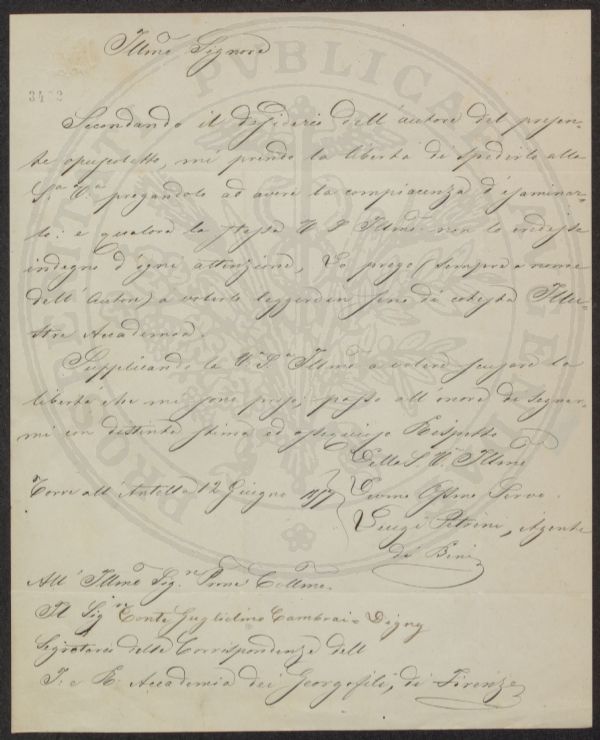 Illmo Signore
Secondando il desiderio dell'autore del presen-
te opuscoletto, mi prendo la libertà di spedirlo alla
S.a V.a pregandola ad avere la compiacenza d'esaminar-
lo: e qualora la stessa V. S. Illma non lo credesse
indegno d'ogni attenzione, La prego (sempre a nome
dell'Autore) a volerlo leggere in seno di cotesta Illu-
stre Accademia.
Supplicando la V.a S.a Illma a volere scusare la
libertà che mi sono preso, passo all'onore di segnar-
mi con distinta stima ed ossequioso Rispetto
Della S. V. Illma
Torre all'Antella 12 Giugno
Devmo Servo
Luigi Petrini, Agente
di Beni
All'Illmo Sig.r Prone Collmo
Il Sig.r Conte Guglielmo Cambrai=Digny
Segretario delle Corrispondenze dell'
I. e R. Accademia dei Georgofili, di Firenze